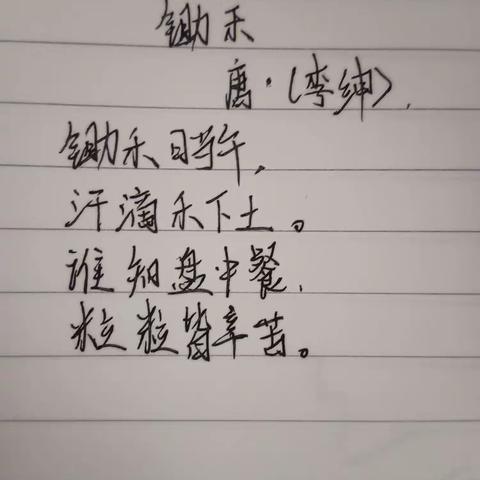 锄禾
唐·(李绅).
锄禾日当午,
汗滴禾下土。
谁知盘中餐,
粒粒皆辛苦。